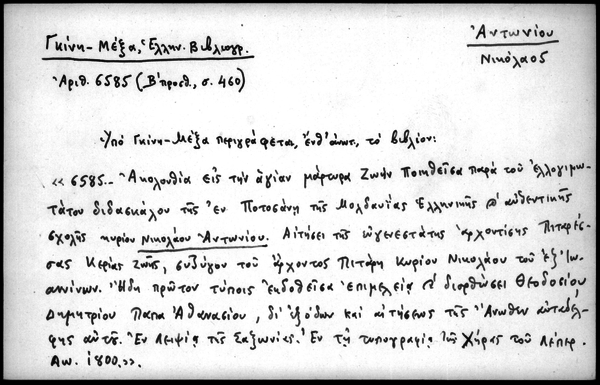 Γκίνη-Μέξα, Ἑλλην. Βιβλιογρ.
Ἀντωνίου
Νικόλαος
Ἀριθ. 6585 (Β' προσθ., σ. 460)
Ὑπό Γκίνη-Μέξα περιγράφεται, ἔνθ' ἀνωτ., τό βιβλίον:
«6585.- Ἀκολουθία εἰς τήν ἁγίαν μάρτυρα Ζωήν Ποιηθεῖσα παρά τοῦ ἐλλογιμω-
τάτου διδασκάλου τῆς ἐν Ποτοσάνῃ τῆς Μολδαυίας Ἑλληνικῆς & αὐθεντικῆς
σχολῆς κυρίου Νικολάου Ἀντωνίου. Αἰτήσει τῆς εὐγενεστάτης ἀρχοντίσης Πιταρέσ-
σας Κερίας Ζωῆς, συζύγου τοῦ ἄρχοντος Πιτάρη Κυρίου Νικολάου τοῦ ἐξ Ἰωα-
ννίνων. Ἤδη πρῶτον τύποις ἐκδοθεῖσα ἐπιμελείᾳ & διορθώσει Θεοδοσίου
Δημητρίου Παπα Ἀθανασίου, δι' ἐξόδων καί αἰτήσεως τῆς Ἄνωθεν αὐταδέλ-
φης αὐτῆς. Ἐν Λειψίᾳ τῆς Σαξωνίας. Ἐν τῇ τυπογραφίᾳ τῆς Χήρας τοῦ Λέπερ.
Αω. 1800.».